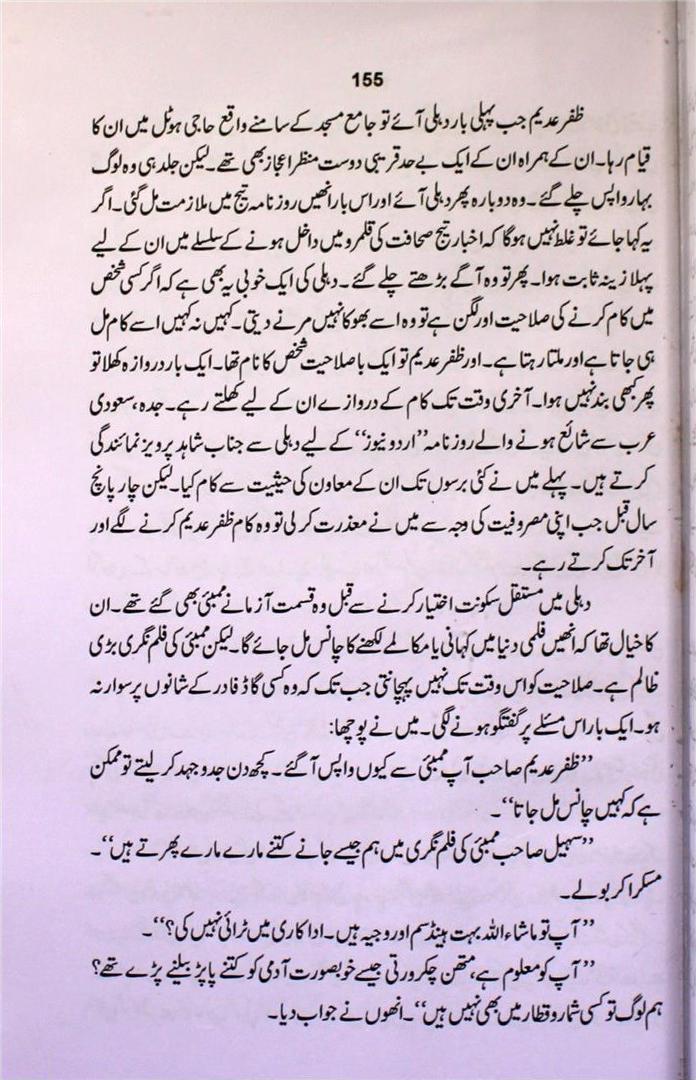 155
ظفر عدیم جب پہلی بار دہلی آئے تو جامع مسجد کے سامنے واقع حاجی ہوٹل میں ان کا
قیام رہا۔ ان کے ہمراہ ان کے ایک بے حد قریبی دوست منظر اعجاز بھی تھے۔ لیکن جلد ہی وہ لوگ
بہار واپس چلے گئے۔ وہ دوبارہ پھر دہلی آئے اور اس بار انھیں روزنامہ تیج میں ملازمت مل گئی۔ اگر
یہ کہا جائے تو غلط نہیں ہوگا کہ اخبار تیج صحافت کی قلمرو میں داخل ہونے کے سلسلے میں ان کے لیے
پہلا زینہ ثابت ہوا۔ پھر تو وہ آگے بڑھتے چلے گئے۔ دہلی کی ایک خوبی یہ بھی ہے کہ اگر کسی شخص
میں کام کرنے کی صلاحیت اور لگن ہے تو وہ اسے بھوکا نہیں مرنے دیتی۔ کہیں نہ کہیں اسے کام مل
ہی جاتا ہے اور ملتا رہتا ہے۔ اور ظفر عدیم تو ایک باصلاحیت شخص کا نام تھا۔ ایک بار دروازہ کھلا تو
پھر کبھی بند نہیں ہوا۔ آخری وقت تک کام کے دروازے ان کے لیے کھلتے رہے۔ جدہ، سعودی
عرب سے شائع ہونے والے روزنامہ ”اردو نیوز“ کے لیے دہلی سے جناب شاہد پرویز نمائندگی
کرتے ہیں۔ پہلے میں نے کئی برسوں تک ان کے معاون کی حیثیت سے کام کیا۔ لیکن چار پانچ
سال قبل جب اپنی مصروفیت کی وجہ سے میں نے معذرت کر لی تو وہ کام ظفر عدیم کرنے لگے اور
آخر تک کرتے رہے۔
دہلی میں مستقل سکونت اختیار کرنے سے قبل وہ قسمت آزمانے ممبئی بھی گئے تھے۔ ان
کا خیال تھا کہ انھیں فلمی دنیا میں کہانی یا مکالمے لکھنے کا چانس مل جائے گا۔ لیکن ممبئی کی فلم نگری بڑی
ظالم ہے۔ صلاحیت کو اس وقت تک نہیں پہچانتی جب تک کہ وہ کسی گاڈ فادر کے شانوں پر سوار نہ
ہو۔ ایک بار اس مسئلے پر گفتگو ہونے لگی۔ میں نے پوچھا:
”ظفر عدیم صاحب آپ ممبئی سے کیوں واپس آگئے۔ کچھ دن جدوجہد کر لیتے تو ممکن
ہے کہ کہیں چانس مل جاتا“۔
”سہیل صاحب ممبئی کی فلم نگری میں ہم جیسے جانے کتنے مارے مارے پھرتے ہیں“۔
مسکرا کر بولے۔
”آپ تو ماشاء اللہ بہت ہینڈسم اور وجیہ ہیں۔ اداکاری میں ٹرائی نہیں کی؟“۔
”آپ کو معلوم ہے، متھن چکرورتی جیسے خوبصورت آدمی کو کتنے پاپڑ بیلنے پڑے تھے؟
ہم لوگ تو کسی شمار و قطار میں بھی نہیں ہیں“۔ انھوں نے جواب دیا۔